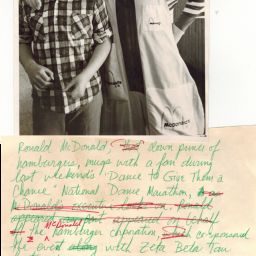 Ronald McDonald, clown prince of
hamburgers, mugs with a fan during
last weekend's "Dance to Give Them a
Chance" National Dance Marathon,
McDonald's executive looks on, Ronald
appeared appeared on behalf
McDonald's
the hamburger corporation, co-sponsored
the event along with Zeta Beta Tau